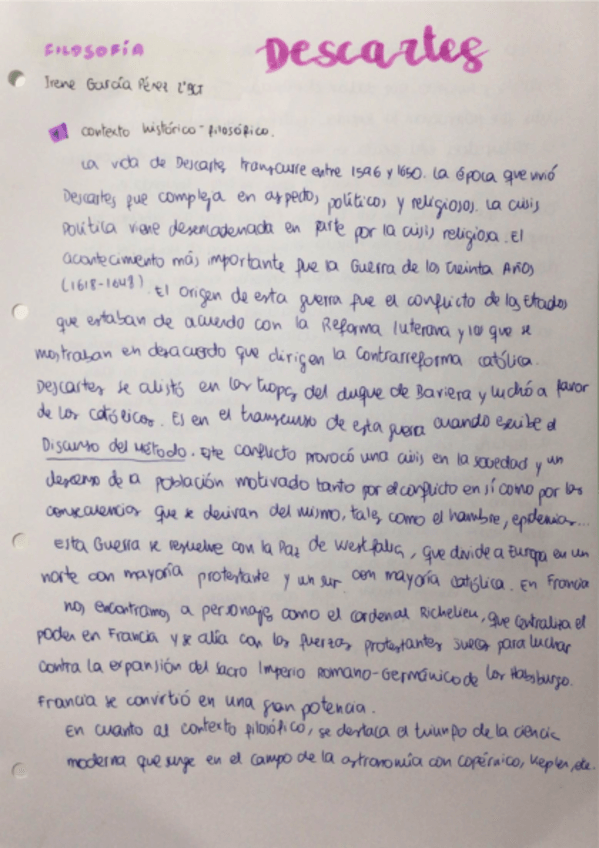 FILOSOFÍA
Descartes
Irene García Pérez 2ºBCT
contexto histórico-filosófico.
La vida de Descartes transcurre entre 1596 y 1650. La época que vivió
Descartes fue compleja en aspectos políticos y religiosos. La crisis
política viene desencadenada en parte por la crisis religiosa. El
acontecimiento más importante fue la Guerra de los Treinta Años
(1618-1648). El origen de esta guerra fue el conflicto de los Estados
que estaban de acuerdo con la Reforma luterana y los que se
mostraban en desacuerdo que dirigen la Contrarreforma católica.
Descartes se alistó en las tropas del duque de Baviera y luchó a favor
de los católicos. Es en el transcurso de esta guerra cuando escribe el
Discurso del Método. Este conflicto provocó una crisis en la sociedad y un
descenso de la población motivado tanto por el conflicto en sí como por las
consecuencias que se derivan del mismo, tales como el hambre, epidemias...
Esta Guerra se resuelve con la Paz de Westfalia, que divide a Europa en un
norte con mayoría protestante y un sur con mayoría católica. En Francia
nos encontramos a personajes como el cardenal Richelieu, que centraliza el
poder en Francia y se alía con las fuerzas protestantes suecas para luchar
contra la expansión del Sacro Imperio Romano-Germánico de los Habsburgo.
Francia se convirtió en una gran potencia.
En cuanto al contexto filosófico, se destaca el triunfo de la ciencia
moderna que surge en el campo de la astronomía con Copérnico, Kepler, etc.